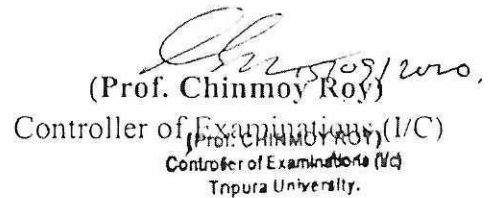 15/09/2020.
(Prof. Chinmoy Roy)
Controller of Examinations (I/C)
(Prof. CHINMOY ROY)
Controller of Examinations (I/c)
Tripura University.